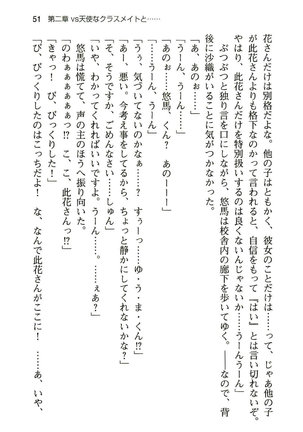 51　第二章 vs天使なクラスメイトと……
花さんだけは別格だもなぁ。他の子はともかく、彼女のことだけは……って、じゃあ他の子
が此花さんよりも格下なのかって言われると、自信をもって『はい』とは言い切れないぞ。
此花さんだけを特別扱いするのは良くないんじゃないか……うーんうーん」
ぶつぶつと独り言を口にしながら、悠馬は校舎内の廊下を歩いてゆく。――なので、背
後に沙織がいることに気がつかなかった。
「あ、あのぉ～……」
「うーん、うーん」
「……悠馬、くん？　あのー……」
「うーんうーん、うーん」
「うぅ、気づいてないのかなぁ……？　すぅーっ……ゆ・う・ま・くんっ」
「あー、悪い。今考え事をしてるから、ちょっと静かにしてくれないかな？」
「そ、そうですか、ごめんなさい……しゅん」
「いや、わかってくれればいいですよ。うーん……。……ぇあ？」
悠馬は慌てて、声の主のほうへ振り向いた。
「わぁぁぁぁぁぁっ!?　こ、こ、此花さんっ!?」
「きゃっ！　び、びっくりした！」
「び、びっくりしたのはこっちだよ！　な、なんで此花さんがここに!?　……あ、いや、